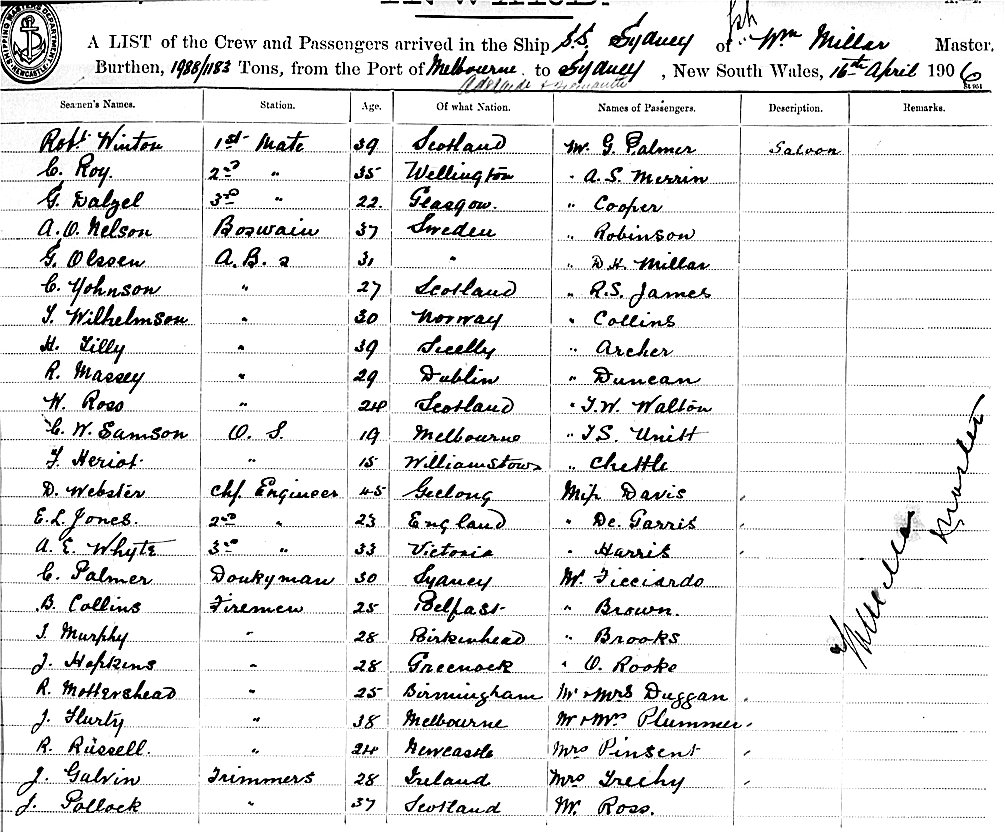 INWARD.
SHIPPING MASTER'S DEPARTMENT NEWCASTLE
A LIST of the Crew and Passengers arrived in the Ship S.S. Sydney of Wm Millar Master.
Burthen, 1988/1183 Tons, from the Port of Melbourne to Sydney, New South Wales, 16th April 1906
Seamen's Names. Station. Age. Of what Nation. Names of Passengers. Description. Remarks.
Robt Winton 1st Mate 39 Scotland Mr G. Palmer Saloon
C. Roy. 2nd " 35 Wellington " A.S. Merrin
G. Dalzel 3rd " 22. Glasgow. " Cooper
A.O. Nelson Boswain 37 Sweden " Robinson
G. Olssen A.B.s 31 " " D.H. Millar
C. Yohnson " 27 Scotland " R.S. James
T. Wilhelmson " 30 Norway " Collins
H. Tilly " 39 Scelly " Archer
R. Massey " 29 Dublin " Duncan
W. Ross " 24 Scotland " T.W. Walton
C. W. Samson O. S. 19 Melbourne " T.S. Unitt
T. Heriot " 15 Williamstown " Chettle
D. Webster Chf. Engineer 45 Geelong Miss Davis
E.L. Jones. 2nd " 23 England " De. Garris
A. E. Whyte 3rd " 33 Victoria " Harris
C. Palmer Donkyman 30 Sydney Mr. Ficciardo
B. Collins Firemen 25 Belfast " Brown.
T. Murphy " 28 Birkenhead " Brooks
J. Hopkins " 28 Greenock " O. Rooke
R. Mottershead " 25 Birmingham Mr & Mrs Duggan
J. Flurty " 38 Melbourne Mr & Mrs Plummer
R. Russell. " 24 Newcastle Mrs Pinsent
J. Galvin Trimmers 28 Ireland Mrs Trechy
J. Pollock " 37 Scotland Mr. Ross.
Wm Millar Master